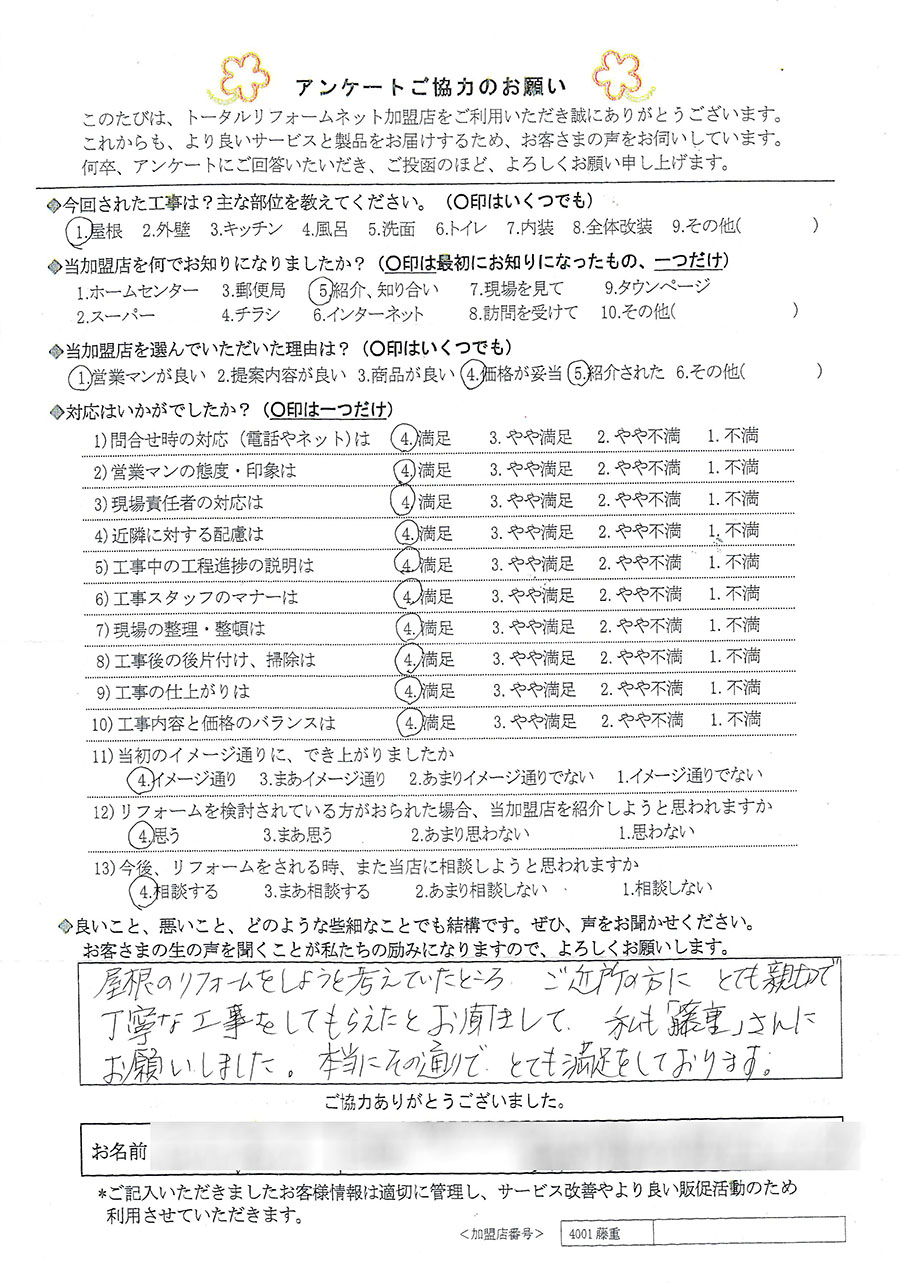 アンケートご協力のお願い
このたびは、トータルリフォームネット加盟店をご利用いただき誠にありがとうございます。
これからも、より良いサービスと製品をお届けするため、お客さまの声をお伺いしています。
何卒、アンケートにご回答いたいだき、ご投函のほど、よろしくお願い申し上げます。
◆今回された工事は？主な部位を教えてください。（〇印はいくつでも）
1.屋根 2.外壁 3.キッチン 4.風呂 5.洗面 6.トイレ 7.内装 8.全体改装 9.その他( )
◆当加盟店を何でお知りになりましたか？（〇印は最初にお知りになったもの、一つだけ）
1.ホームセンター 3.郵便局 5.紹介、知り合い 7.現場を見て 9.タウンページ
2.スーパー 4.チラシ 6.インターネット 8.訪問を受けて 10.その他( )
◆当加盟店を選んでいただいた理由は？（〇印はいくつでも）
1.営業マンが良い 2.提案内容が良い 3.商品が良い 4.価格が妥当 5.紹介された 6.その他( )
◆対応はいかがでしたか？（〇印は一つだけ）
1)問合せ時の対応（電話やネット)は 4.満足 3.やや満足 2.やや不満 1.不満
2)営業マンの態度・印象は 4.満足 3.やや満足 2.やや不満 1.不満
3)現場責任者の対応は 4.満足 3.やや満足 2.やや不満 1.不満
4)近隣に対する配慮は 4.満足 3.やや満足 2.やや不満 1.不満
5)工事中の工程進捗の説明は 4.満足 3.やや満足 2.やや不満 1.不満
6)工事スタッフのマナーは 4.満足 3.やや満足 2.やや不満 1.不満
7)現場の整理・整頓は 4.満足 3.やや満足 2.やや不満 1.不満
8)工事後の後片付け、掃除は 4.満足 3.やや満足 2.やや不満 1.不満
9)工事の仕上がりは 4.満足 3.やや満足 2.やや不満 1.不満
10)工事内容と価格のバランスは 4.満足 3.やや満足 2.やや不満 1.不満
11)当初のイメージ通りに、でき上がりましたか
4.イメージ通り 3.まあイメージ通り 2.あまりイメージ通りでない 1.イメージ通りでない
12)リフォームを検討されている方がおられた場合、当加盟店を紹介しようと思われますか
4.思う 3.まあ思う 2.あまり思わない 1.思わない
13)今後、リフォームをされる時、また当店に相談しようと思われますか
4.相談する 3.まあ相談する 2.あまり相談しない 1.相談しない
◆良いこと、悪いこと、どのような些細なことでも結構です。ぜひ、声をお聞かせください。
お客さまの生の声を聞くことが私たちの励みになりますので、よろしくお願いします。
屋根のリフォームをしようと考えていたところ、ご近所の方に とても親切で
丁寧な工事をしてもらえたとお聞きして、私も「藤重」さんに
お願いしました。本当にその通りで とても満足をしております。
ご協力ありがとうございました。
お名前
*ご記入いただきましたお客様情報は適切に管理し、サービス改善やより良い販促活動のため
利用させていただきます。
＜加盟店番号＞ 4001 藤重